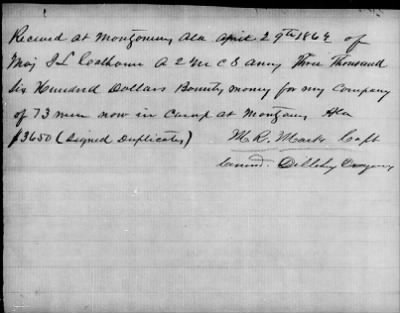 Received at Montgomery Ala April 29th 1862 of
Maj J L Calhoun A 2 M C S Army Three Thousand
Six Hundred Dollars Bounty money for my Company
of 73 men now in Camp at Montgomery Ala
$3650 (Signed Duplicates) M R. Marks Capt
Comd. Company